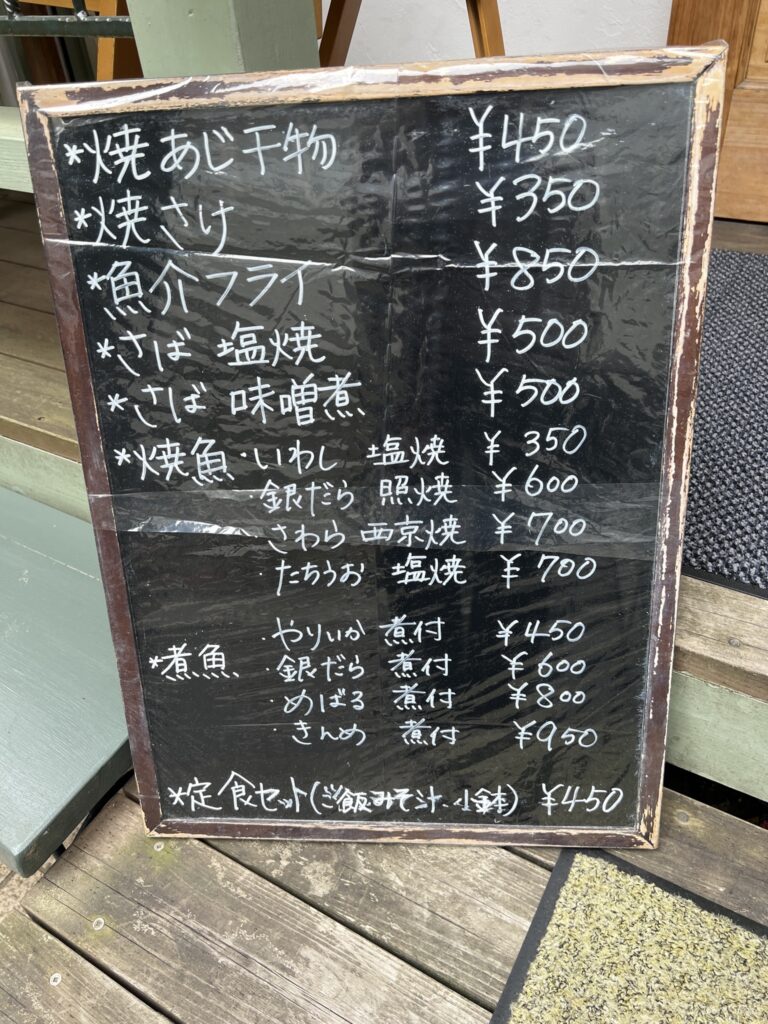 *焼あじ干物 ¥450
*焼さけ ¥350
*魚介フライ ¥850
*さば 塩焼 ¥500
*さば 味噌煮 ¥500
*焼魚・いわし 塩焼 ¥350
・銀だら 照焼 ¥600
・さわら 西京焼 ¥700
・たちうお 塩焼 ¥700
・やりいか 煮付 ¥450
*煮魚 ・銀だら 煮付 ¥600
・めばる 煮付 ¥800
・きんめ 煮付 ¥950
*定食セット(ご飯みそ汁・小鉢) ¥450